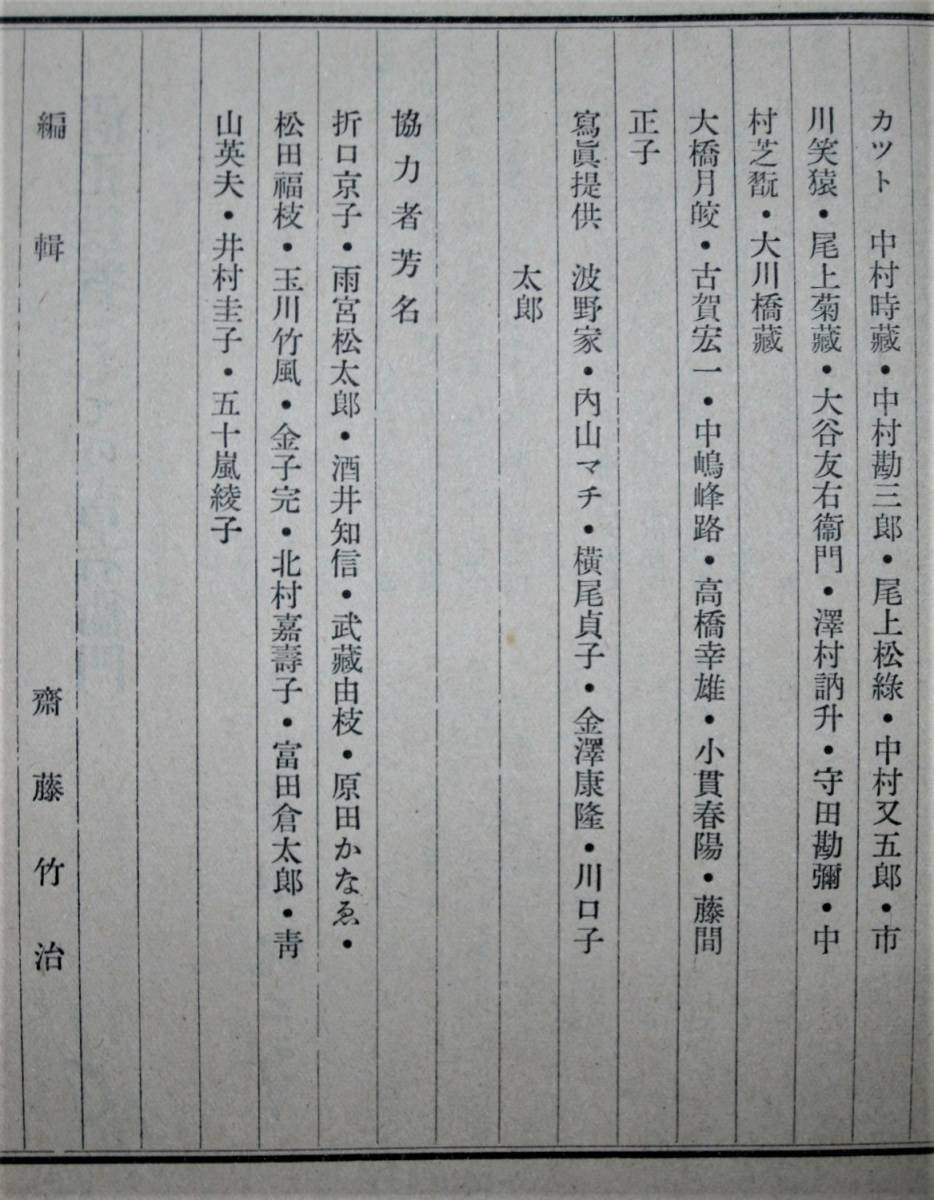 カツト　中村時藏・中村勘三郎・尾上松綠・中村又五郎・市
川笑猿・尾上菊藏・大谷友右衞門・澤村訥升・守田勘彌・中
村芝翫・大川橋藏
大橋月皎・古賀宏一・中嶋峰路・高橋幸雄・小貫春陽・藤間
正子
寫眞提供　波野家・內山マチ・橫尾貞子・金澤康隆・川口子
太郎
協力者芳名
折口京子・雨宮松太郎・酒井知信・武藏由枝・原田かなゑ・
松田福枝・玉川竹風・金子完・北村嘉壽子・富田倉太郎・靑
山英夫・井村圭子・五十嵐綾子
編輯　齋藤竹治